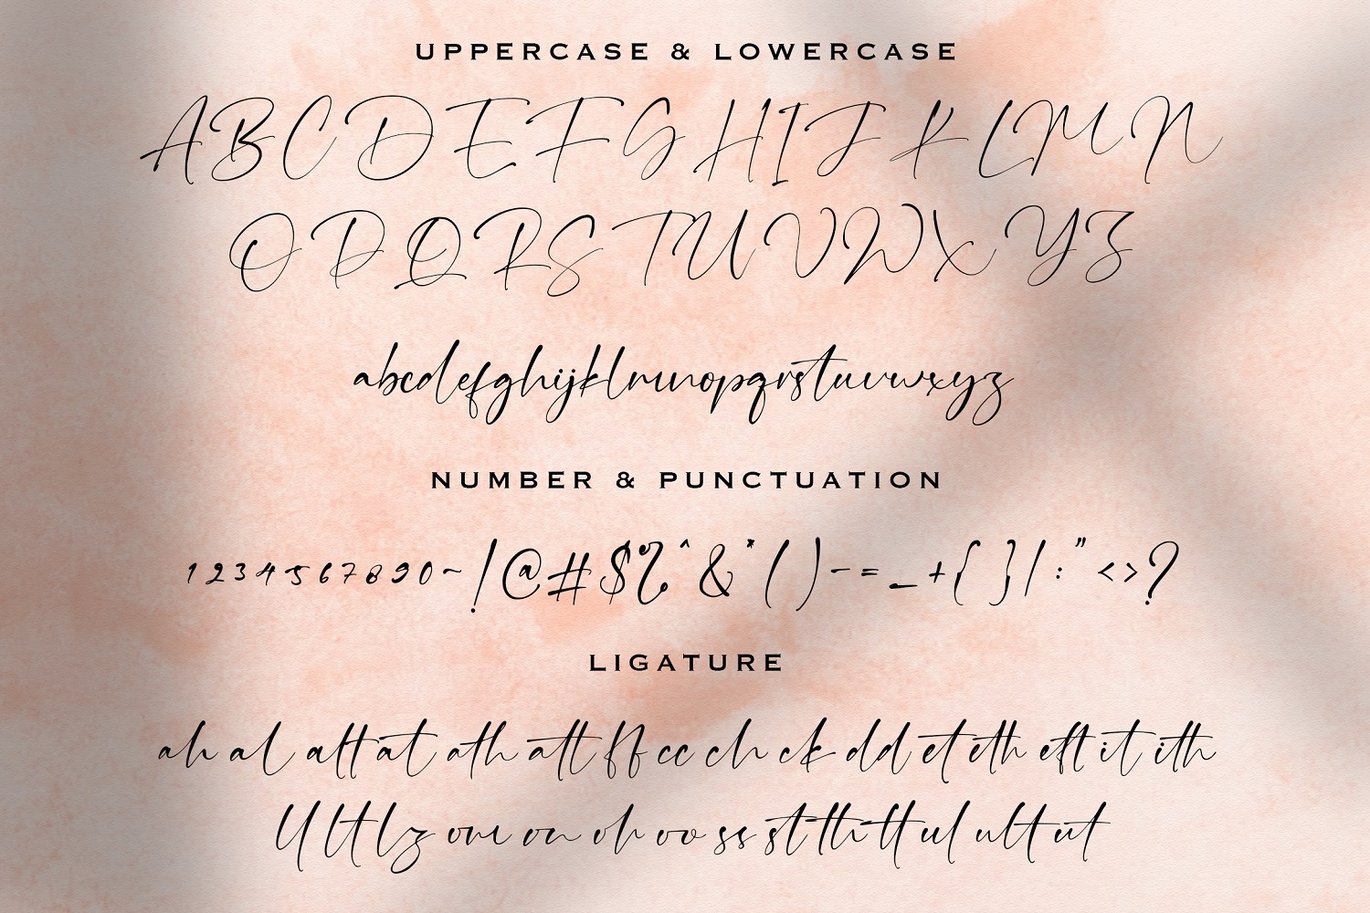 UPPERCASE & LOWERCASE
A B C D E F G H I J K L M N
O P Q R S T U V W X Y Z
abcdefghijklmnopqrstuvwxyz
NUMBER & PUNCTUATION
1 2 3 4 5 6 7 8 9 0 ~ ! @ # $ % ^ & * ( ) - = _ + { } / : " < > ?
LIGATURE
ah al alt at ath att ff cc ch ck dd et eth eft it ith
ll lt lz om on oh oo ss st th tt ul ult ut